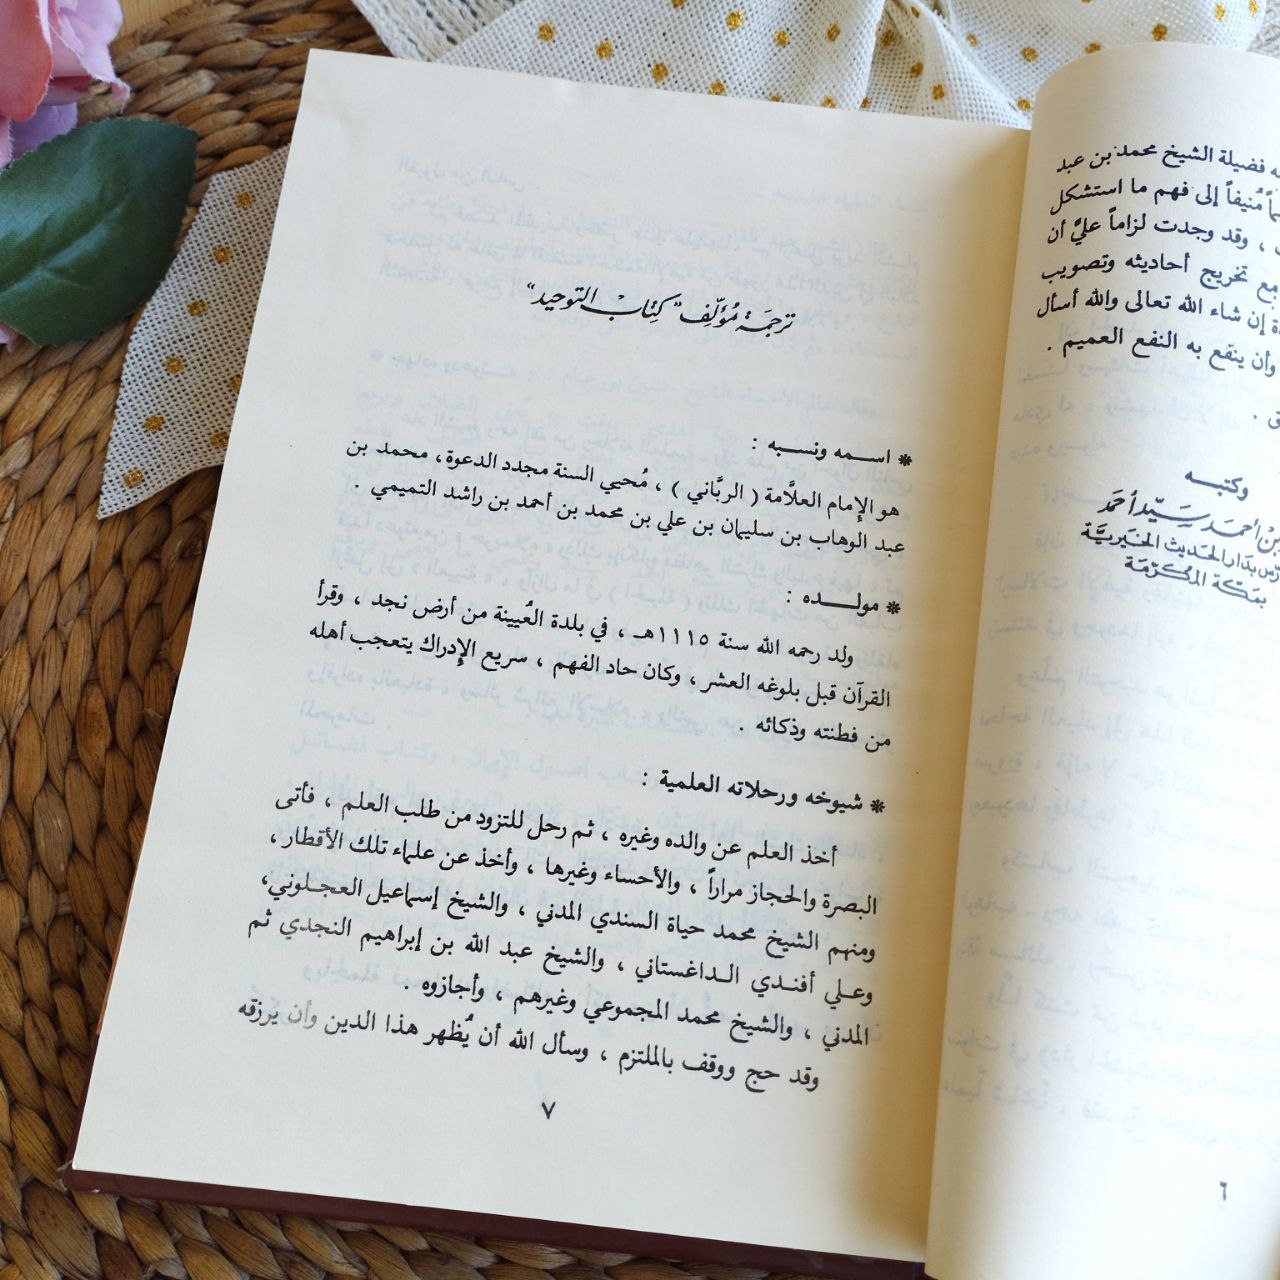 فضيلة الشيخ محمد بن عبد
مُنيفاً إلى فهم ما استشكل
، وقد وجدت لزاماً عليَّ أن
مع تخريج أحاديثه وتصويب
إن شاء الله تعالى والله أسأل
وأن ينقع به النفع العميم .
وكتبه
بن أحمد سيد أحمد
بدار الحديث الخيرية
بمكة المكرمة
٦
ترجمة مُؤلِّف "كِتاب التوحيد"
* اسمه ونسبه :
هو الإمام العلاَّمة ( الربَّاني ) ، مُحيي السنة مجدد الدعوة ، محمد بن
عبد الوهاب بن سليمان بن علي بن محمد بن أحمد بن راشد التميمي .
* مولده :
ولد رحمه الله سنة ١١١٥هـ ، في بلدة العُيينة من أرض نجد ، وقرأ
القرآن قبل بلوغه العشر ، وكان حاد الفهم ، سريع الإدراك يتعجب أهله
من فطنته وذكائه .
* شيوخه ورحلاته العلمية :
أخذ العلم عن والده وغيره ، ثم رحل للتزود من طلب العلم ، فأتى
البصرة والحجاز مراراً ، والأحساء وغيرها ، وأخذ عن علماء تلك الأقطار ،
ومنهم الشيخ محمد حياة السندي المدني ، والشيخ إسماعيل العجلوني ،
وعلي أفندي الداغستاني ، والشيخ عبد الله بن إبراهيم النجدي ثم
المدني ، والشيخ محمد المجموعي وغيرهم ، وأجازوه .
وقد حج ووقف بالملتزم ، وسأل الله أن يُظهر هذا الدين وأن يرزقه
٧